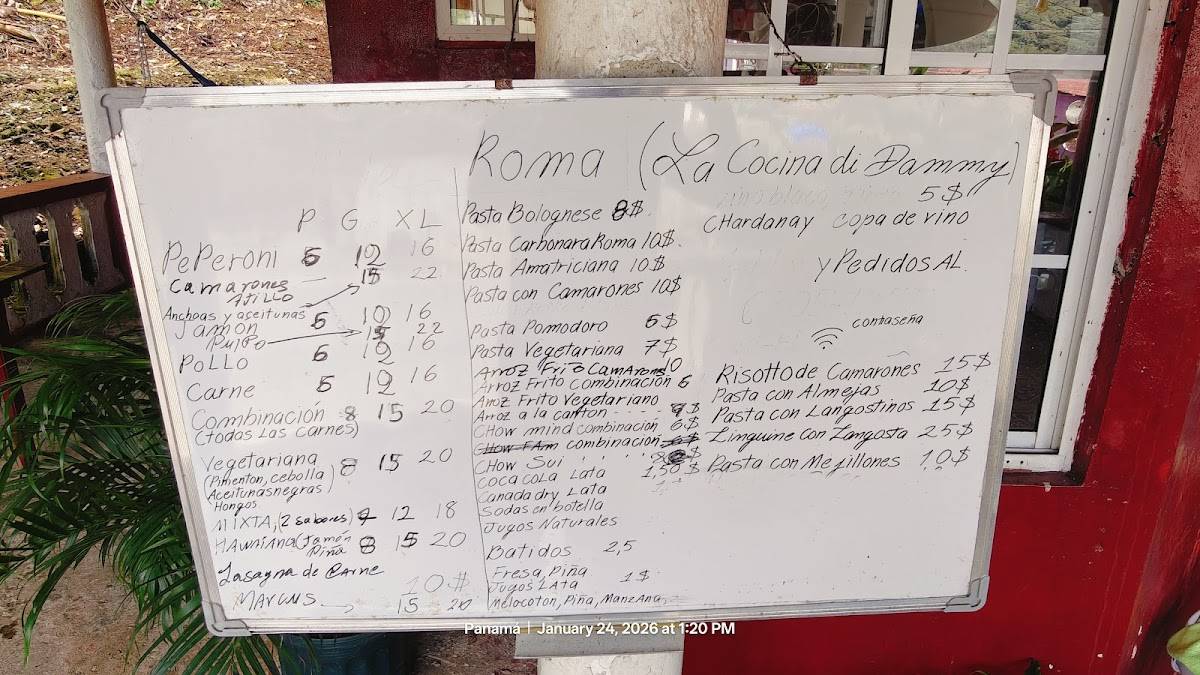 Roma (La Cocina di Dammy)
P G XL
PePeroni 6 10 16
Camarones 15 22
Atillo
Anchoas y aceitunas
Jamon 6 10 16
Pulpo 15 22
Pollo 6 10 16
Carne 6 10 16
Combinación 8 15 20
(todas Las carnes)
Vegetariana 8 15 20
(Pimenton, cebolla)
Aceitunas negras)
Hongos
MIXTA, (2 sabores) 9 12 18
HAWAIANA (Jamón 8 15 20
Piña
Lasagna de Carne 10$
MARCUS 15 20
Pasta Bolognese 8$.
Pasta Carbonara Roma 10$.
Pasta Amatriciana 10$
Pasta con Camarones 10$
Pasta Pomodoro 6$
Pasta Vegetariana 7$
Arroz Frito Camarons 10
Arroz Frito Combinación 6
Arroz Frito Vegetariano
Arroz a la canton - - - - 9$
CHow mind combinación 6$
CHow FAm combinación
CHow Sui
Coca cola Lata 1,50$
Canada dry Lata
Sodas en botella
Jugos Naturales
Batidos 2,5
Fresa, Piña
Jugos LAtA 1$
Melocoton, Piña, Manzana,
5$
CHardanay copa de vino
y Pedidos AL.
contraseña
Risotto de Camarones 15$
Pasta con Almejas 10$
Pasta con Langostinos 15$
Linguine con Langosta 25$
Pasta con Mejillones 10$
Panamá | January 24, 2026 at 1:20 PM